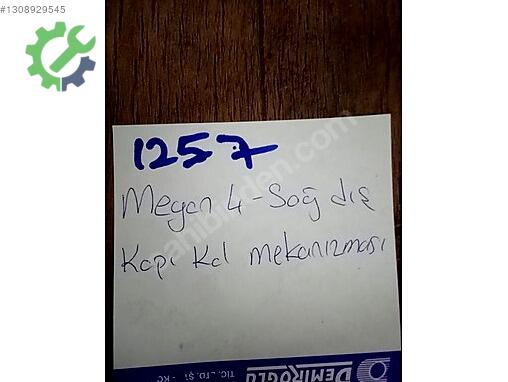 #1308929545
1257
Megan 4 - Sağ dış
Kapı Kol mekanızması
sahibinden.com
DEMİROĞLU
TIC. LTD. ŞTİ. - KO